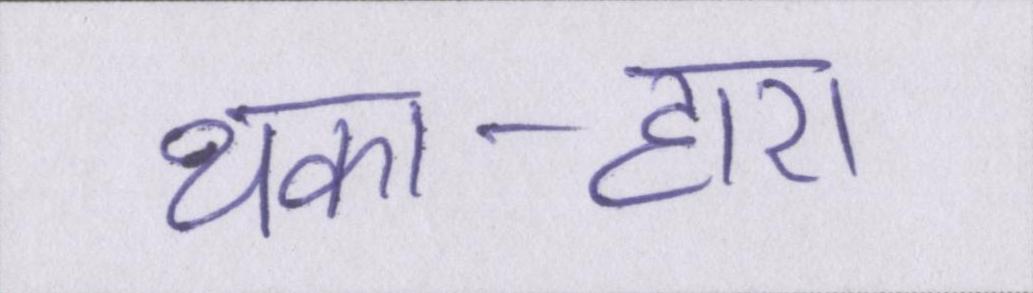 थका-हारा